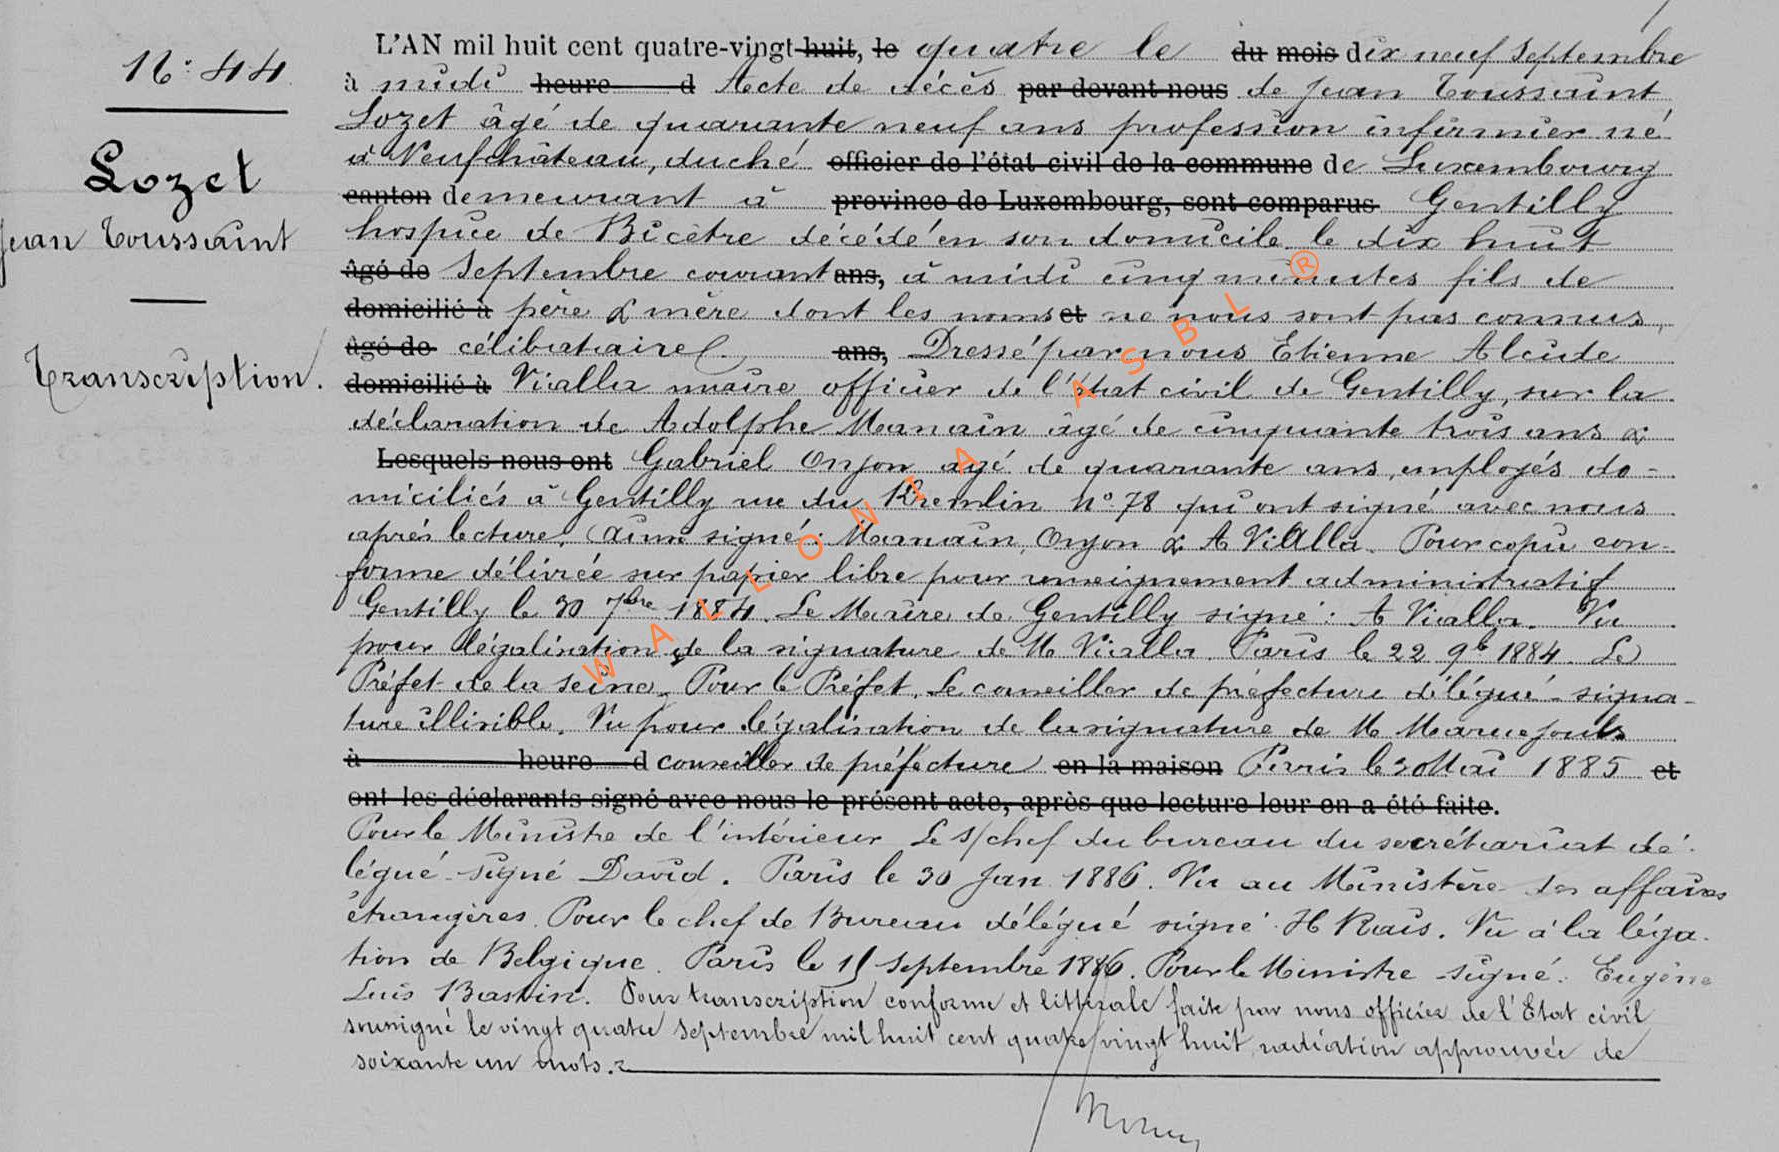 N° 44
Lozet
Jean Toussaint
Transcription.
L'AN mil huit cent quatre-vingt huit, le quatre le du mois dix neuf septembre
à midi heure d Acte de décès par devant nous de Jean Toussaint
Lozet âgé de quarante neuf ans profession infirmier né
à Neufchâteau, duché officier de l'état civil de la commune de Luxembourg
canton demeurant à province de Luxembourg, sont comparus Gentilly
hospice de Bicètre décédé en son domicile le dix huit
âgé de septembre courant ans, à midi cinq minutes fils de
domicilié à père & mère dont les noms et ne nous sont pas connus,
âgé de célibataire. ans, Dressé par nous Etienne Alcide
domicilié à Vialla maire officier de l'état civil de Gentilly, sur la
déclaration de Adolphe Manain âgé de cinquante trois ans &
Lesquels nous ont Gabriel Onjon agé de quarante ans, employés do-
miciliés à Gentilly rue du Kremlin N° 78 qui ont signé avec nous
après lecture. signé: Manain, Onjon & A Vialla. Pour copie con-
forme délivrée sur papier libre pour renseignement administratif
Gentilly le 30 7bre 1884. Le Maire de Gentilly signé: A Vialla. Vu
pour légalisation de la signature de M Vialla. Paris le 22 9b 1884. Le
Préfet de la Seine. Pour le Préfet. Le conseiller de préfecture délégué - signa-
ture illisible. Vu pour légalisation de la signature de M Maruejouls
à heure d conseiller de préfecture en la maison Paris le 30 Mai 1885 et
ont les déclarants signé avec nous le présent acte, après que lecture leur en a été faite.
Pour le Ministre de l'intérieur Le s/chef du bureau du secrétariat dé-
légué - signé David. Paris le 30 Jan 1886. Vu au Ministère des affaires
étrangères. Pour le chef de Bureau délégué signé H Rais. Vu à la léga-
tion de Belgique. Paris le septembre 1886. Pour le Ministre signé: Eugène
Luis Bastin. Pour transcription conforme et littérale faite par nous officier de l'Etat civil
soussigné le vingt quatre septembre mil huit cent quatre vingt huit, radiation approuvée de
soixante un mots.
WALLONIA ASBL ®